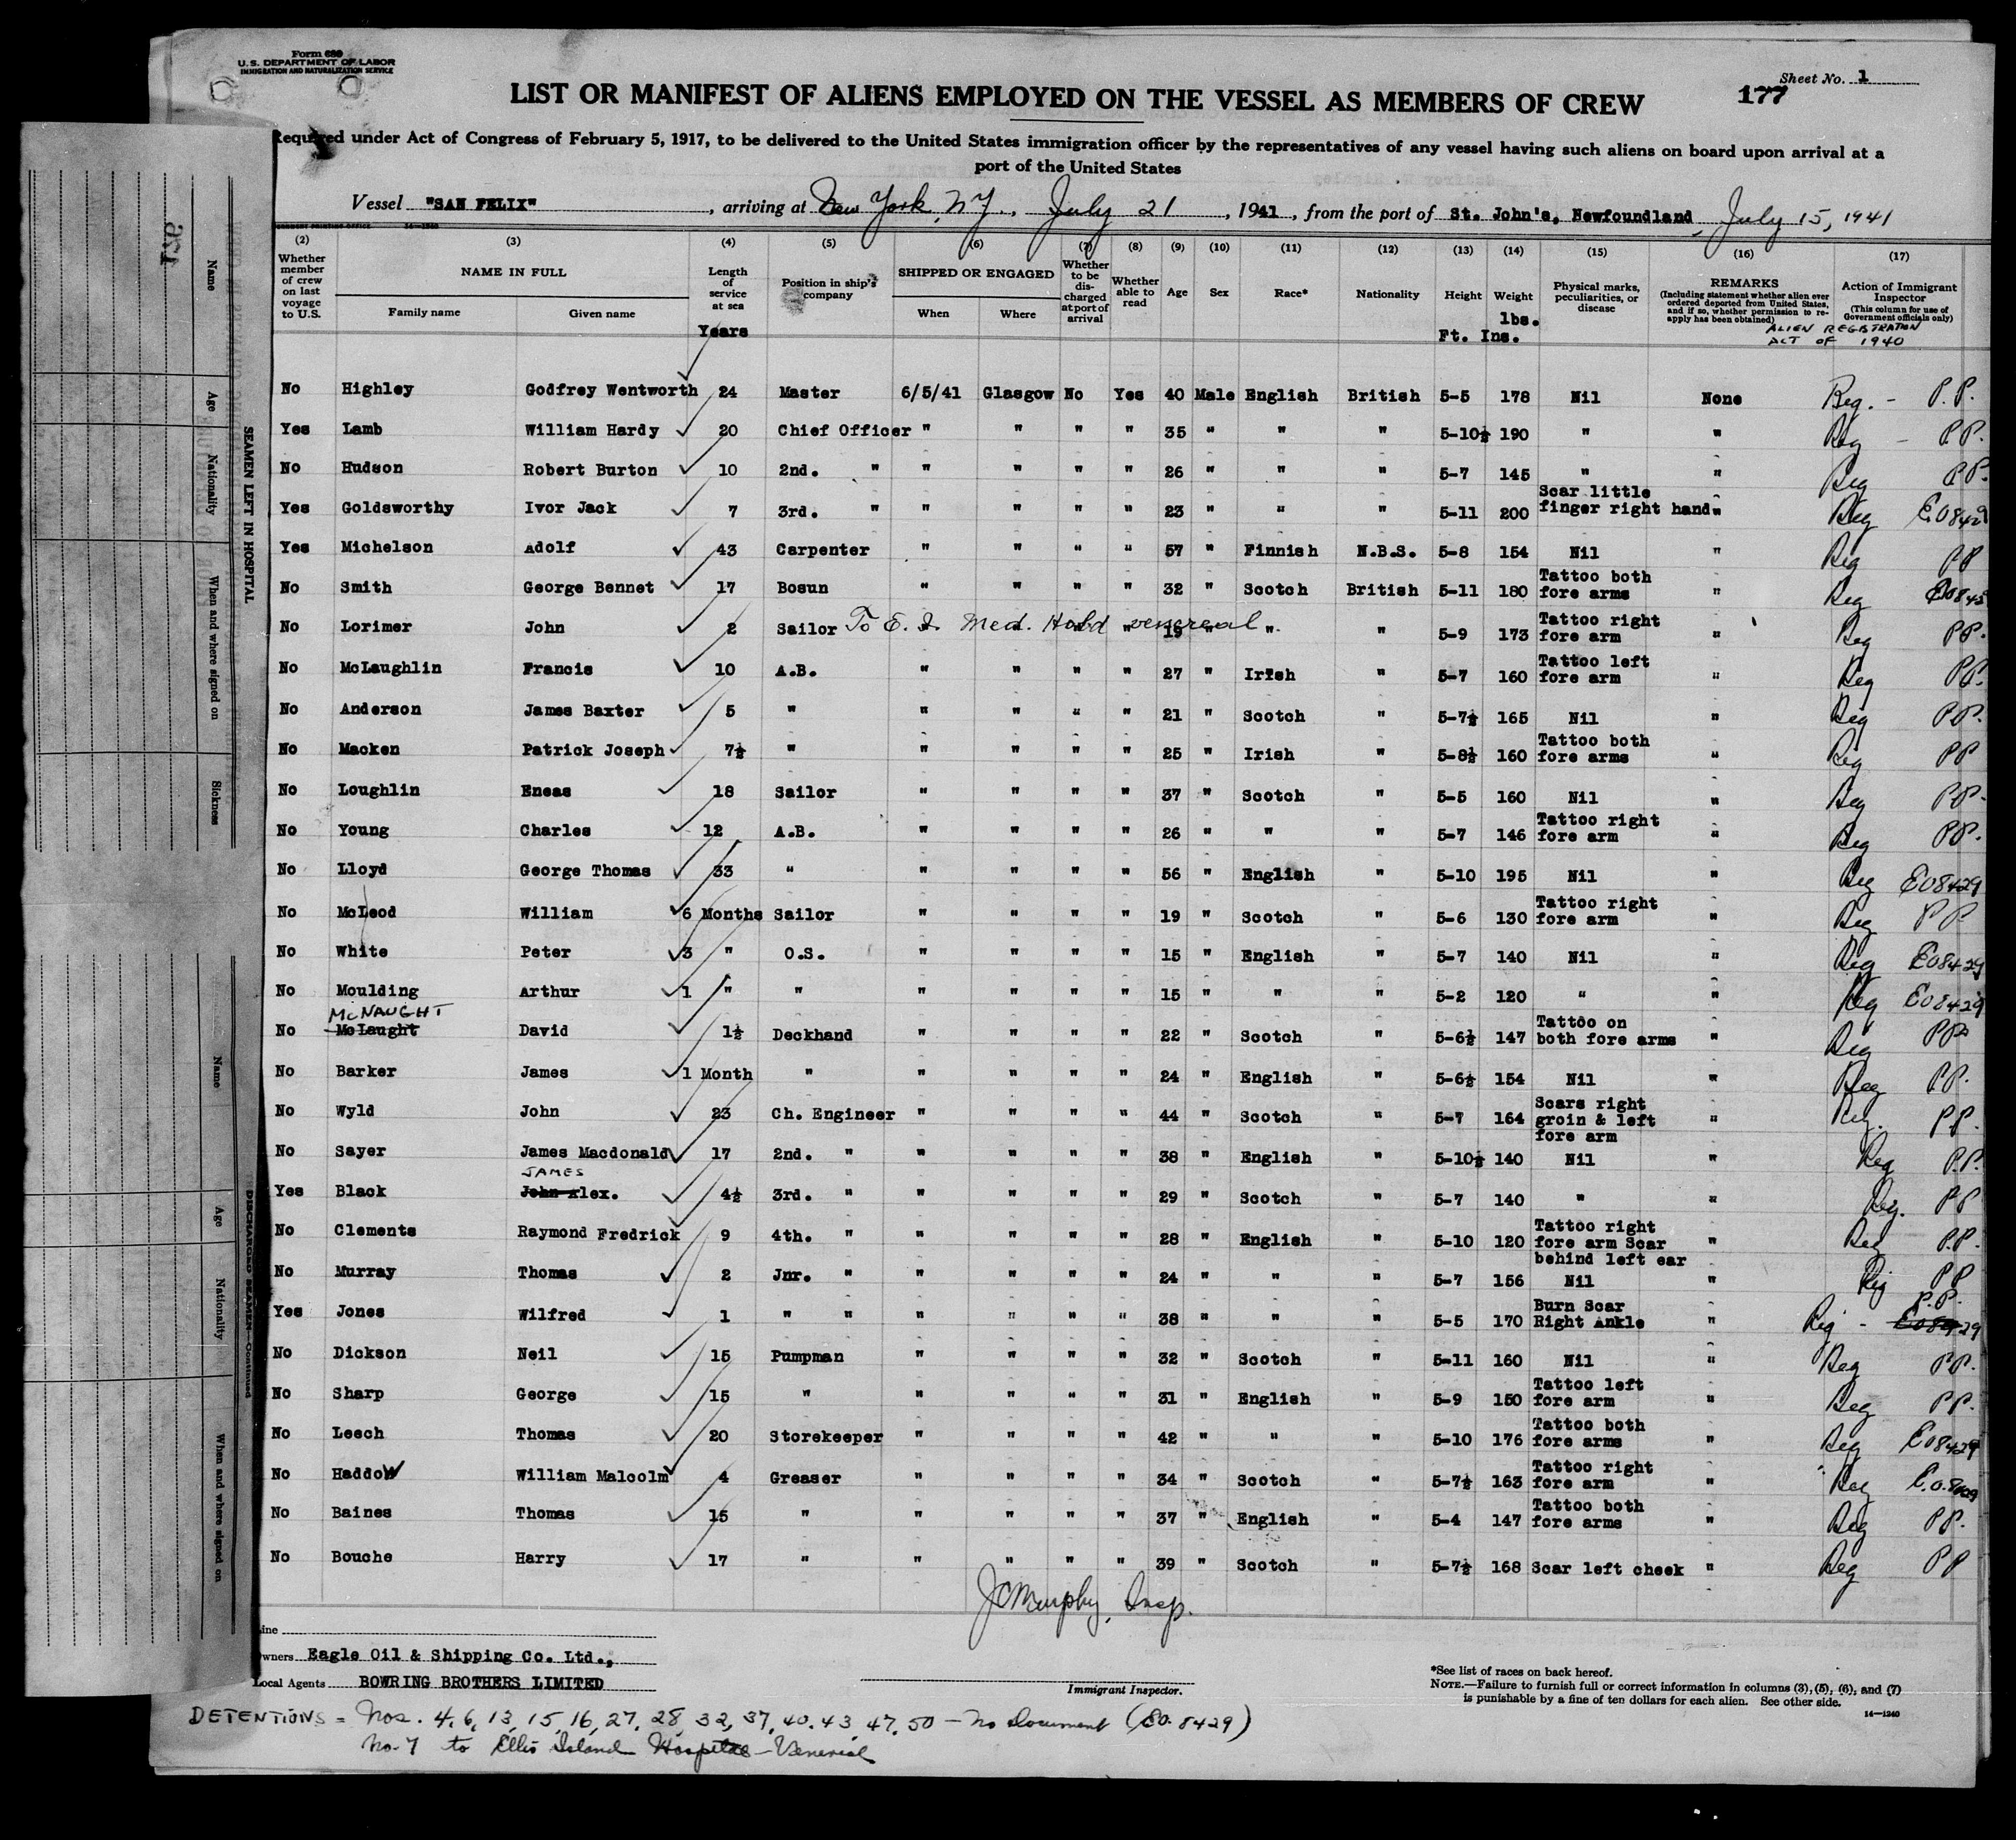 Form 680
U.S. DEPARTMENT OF LABOR
IMMIGRATION AND NATURALIZATION SERVICE
Sheet No. 1
177
LIST OR MANIFEST OF ALIENS EMPLOYED ON THE VESSEL AS MEMBERS OF CREW
Required under Act of Congress of February 5, 1917, to be delivered to the United States immigration officer by the representatives of any vessel having such aliens on board upon arrival at a
port of the United States
Vessel "SAN FELIX", arriving at New York, N.Y., July 21, 1941, from the port of St. John's, Newfoundland, July 15, 1941
(2) (3) (4) (5) (6) (7) (8) (9) (10) (11) (12) (13) (14) (15) (16) (17)
Whether member of crew on last voyage to U.S.
NAME IN FULL
Family name Given name
Length of service at sea
Years
Position in ship's company
SHIPPED OR ENGAGED
When Where
Whether to be discharged at port of arrival
Whether able to read
Age
Sex
Race*
Nationality
Height
Ft. Ins.
Weight
lbs.
Physical marks, peculiarities, or disease
REMARKS
(Including statement whether alien ever ordered deported from United States, and if so, whether permission to re-apply has been obtained)
Action of Immigrant Inspector
(This column for use of Government officials only)
ALIEN REGISTRATION
ACT OF 1940
No Highley Godfrey Wentworth 24 Master 6/5/41 Glasgow No Yes 40 Male English British 5-5 178 Nil None Reg. - P.P.
Yes Lamb William Hardy 20 Chief Officer " " " " 35 " " " 5-10½ 190 " " Reg - P.P.
No Hudson Robert Burton 10 2nd. " " " " " 26 " " " 5-7 145 " " Reg P.P.
Yes Goldsworthy Ivor Jack 7 3rd. " " " " " 23 " " " 5-11 200 Scar little finger right hand " Reg E.O 8429
Yes Michelson Adolf 43 Carpenter " " " " 57 " Finnish N.B.S. 5-8 154 Nil " Reg PP
No Smith George Bennet 17 Bosun " " " " 32 " Scotch British 5-11 180 Tattoo both fore arms " Reg
No Lorimer John 2 Sailor To E. I. Med. Hold venereal " " 19 " " " 5-9 173 Tattoo right fore arm " Reg P.P.
No McLaughlin Francis 10 A.B. " " " " 27 " Irish " 5-7 160 Tattoo left fore arm " Reg PP.
No Anderson James Baxter 5 " " " " " 21 " Scotch " 5-7½ 165 Nil " Reg PP.
No Macken Patrick Joseph 7½ " " " " " 25 " Irish " 5-8½ 160 Tattoo both fore arms " Reg PP
No Loughlin Eneas 18 Sailor " " " " 37 " Scotch " 5-5 160 Nil " Reg PP.
No Young Charles 12 A.B. " " " " 26 " " " 5-7 146 Tattoo right fore arm " Reg PP.
No Lloyd George Thomas 33 " " " " " 56 " English " 5-10 195 Nil " Reg EO8429
No McLeod William 6 Months Sailor " " " " 19 " Scotch " 5-6 130 Tattoo right fore arm " Reg P P
No White Peter 3 " O.S. " " " " 15 " English " 5-7 140 Nil " Reg EO8429
No Moulding Arthur 1 " " " " " " 15 " " " 5-2 120 " " Reg EO8429
McNAUGHT
No McLaught David 1½ Deckhand " " " " 22 " Scotch " 5-6½ 147 Tattoo on both fore arms " Reg PP
No Barker James 1 Month " " " " " 24 " English " 5-6½ 154 Nil " Reg P.P.
No Wyld John 23 Ch. Engineer " " " " 44 " Scotch " 5-7 164 Scars right groin & left fore arm " Reg. P.P.
No Sayer James Macdonald 17 2nd. " " " " " 38 " English " 5-10½ 140 Nil " Reg P.P.
JAMES
Yes Black John Alex. 4½ 3rd. " " " " " 29 " Scotch " 5-7 140 " " Reg. PP
No Clements Raymond Fredrick 9 4th. " " " " " 28 " English " 5-10 120 Tattoo right fore arm Scar behind left ear " Reg P.P.
No Murray Thomas 2 Jnr. " " " " " 24 " " " 5-7 156 Nil " Reg PP
Yes Jones Wilfred 1 " " " " " " 38 " " " 5-5 170 Burn Scar Right Ankle " Reg - P.P. EO8429
No Dickson Neil 15 Pumpman " " " " 32 " Scotch " 5-11 160 Nil " Reg PP.
No Sharp George 15 " " " " " 31 " English " 5-9 150 Tattoo left fore arm " Reg PP.
No Leech Thomas 20 Storekeeper " " " " 42 " " " 5-10 176 Tattoo both fore arms " Reg EO8429
No Haddow William Malcolm 4 Greaser " " " " 34 " Scotch " 5-7½ 163 Tattoo right fore arm " Reg
No Baines Thomas 15 " " " " " 37 " English " 5-4 147 Tattoo both fore arms " Reg PP.
No Bouche Harry 17 " " " " " 39 " Scotch " 5-7½ 168 Scar left cheek " Reg PP
JC Murphy, Insp.
Immigrant Inspector.
Line
Owners Eagle Oil & Shipping Co. Ltd.,
Local Agents BOWRING BROTHERS LIMITED
*See list of races on back hereof.
NOTE.—Failure to furnish full or correct information in columns (3), (5), (6), and (7)
is punishable by a fine of ten dollars for each alien. See other side.
14—1240
DETENTIONS = Nos. 4, 6, 13, 15, 16, 27, 28, 32, 37, 40, 43, 47, 50 — No Document (EO. 8429)
No. 7 to Ellis Island Hospital - Venereal
176
Name
Age
Nationality
When and where signed on
Sickness
SEAMEN LEFT IN HOSPITAL
Name
Age
Nationality
When and where signed on
DISCHARGED SEAMEN—Continued